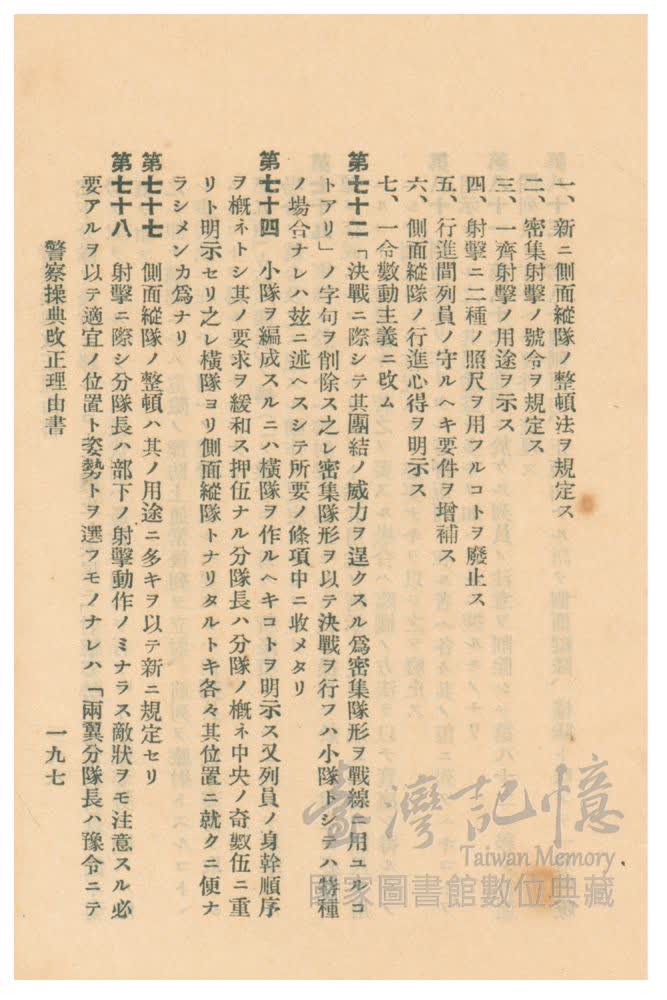 一、新ニ側面縱隊ノ整頓法ヲ規定ス
二、密集射擊ノ號令ヲ規定ス
三、一齊射擊ノ用途ヲ示ス
四、射擊ニ二種ノ照尺ヲ用フルコトヲ廢止ス
五、行進間列員ノ守ルヘキ要件ヲ增補ス
六、側面縱隊ノ行進心得ヲ明示ス
七、一令數動主義ニ改ム
第七十二「決戰ニ際シテ其團結ノ威力ヲ逞クスル爲密集隊形ヲ戰線ニ用ユルコ
トアリ」ノ字句ヲ削除ス之レ密集隊形ヲ以テ決戰ヲ行フハ小隊トシテハ特種
ノ場合ナレハ玆ニ述ヘスシテ所要ノ條項中ニ收メタリ
第七十四　小隊ヲ編成スルニハ橫隊ヲ作ルヘキコトヲ明示ス又列員ノ身幹順序
ヲ槪ネトシ其ノ要求ヲ緩和ス押伍ナル分隊長ハ分隊ノ槪ネ中央ノ奇數伍ニ重
リト明示セリ之レ橫隊ヨリ側面縱隊トナリタルトキ各々其位置ニ就クニ便ナ
ラシメンカ爲ナリ
第七十七　側面縱隊ノ整頓ハ其ノ用途ニ多キヲ以テ新ニ規定セリ
第七十八　射擊ニ際シ分隊長ハ部下ノ射擊動作ノミナラス敵狀ヲモ注意スル必
要アルヲ以テ適宜ノ位置ト姿勢トヲ選フモノナレハ「兩翼分隊長ハ豫令ニテ
警察操典改正理由書
一九七
臺灣記憶
Taiwan Memory
國家圖書館數位典藏